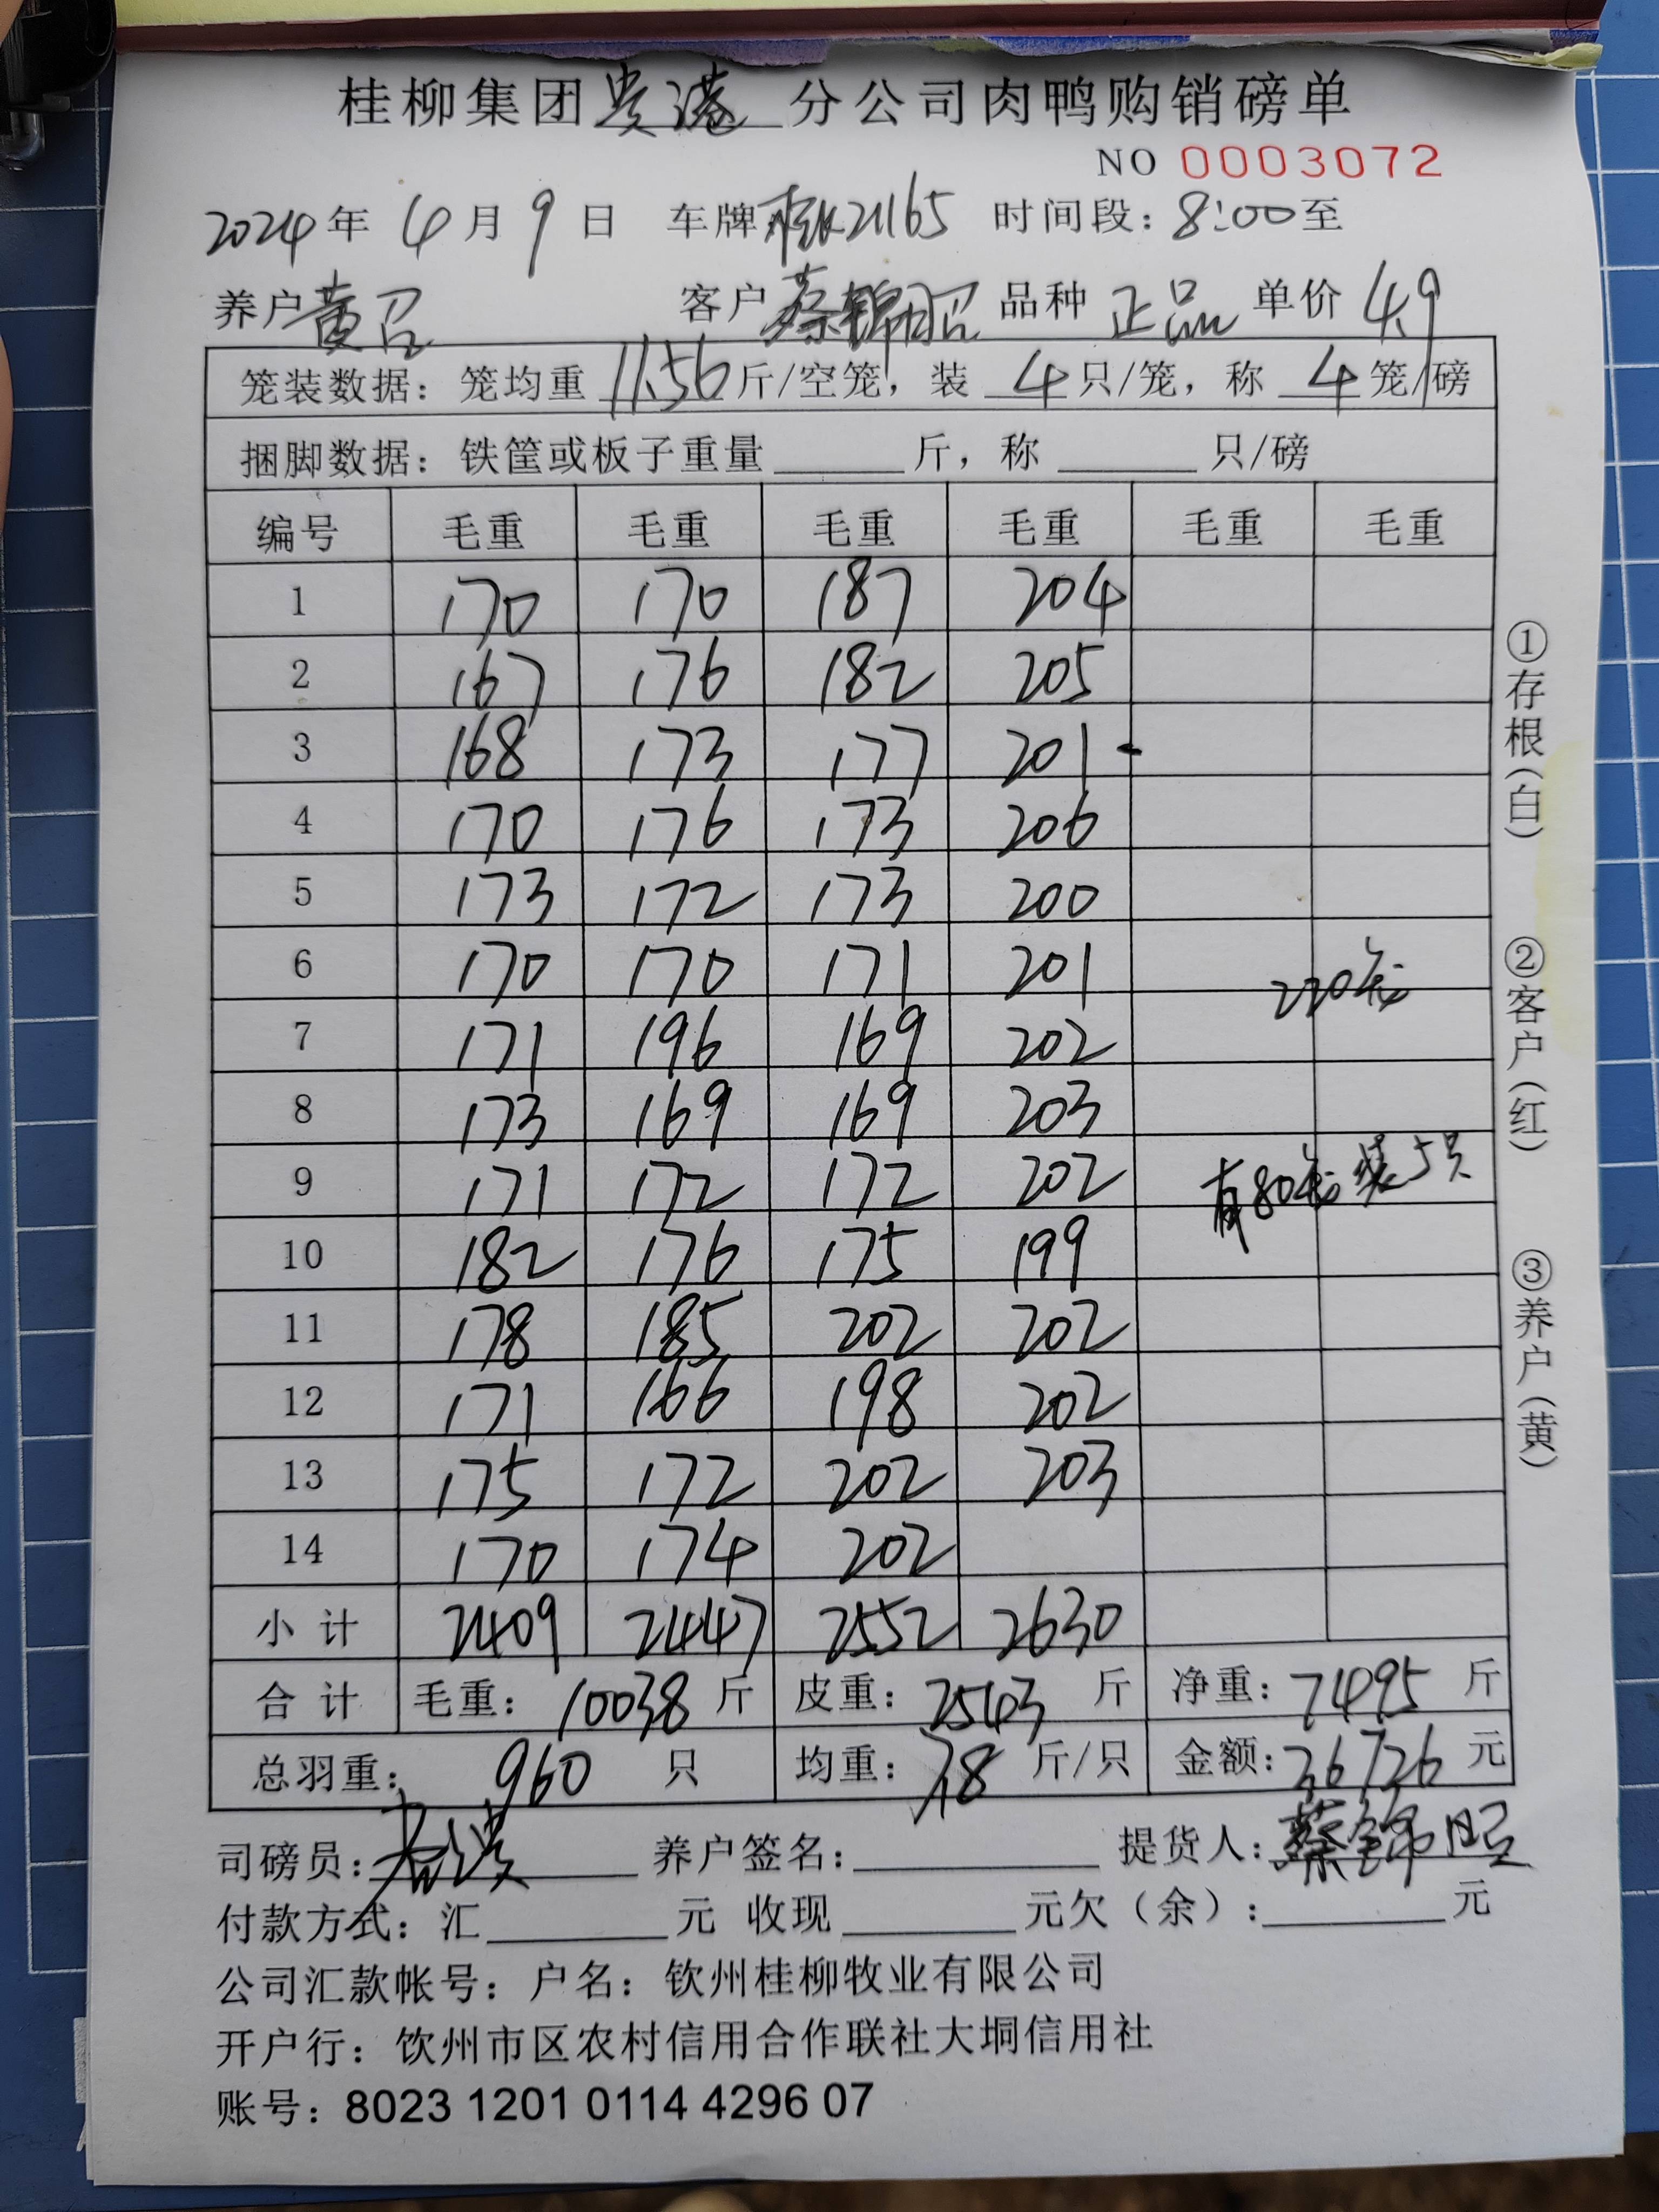 桂柳集团贵港分公司肉鸭购销磅单
NO 0003072
2024年 4月 9日 车牌 21165 时间段：8:00至
养户黄召 客户蔡锦昭 品种 正品 单价 4.9
笼装数据：笼均重 11.56斤/空笼，装 4只/笼，称 4笼/磅
捆脚数据：铁筐或板子重量______斤，称______只/磅
编号 毛重 毛重 毛重 毛重 毛重 毛重
1 170 170 187 204
2 167 176 182 205
3 168 173 177 201 -
4 170 176 173 206
5 173 172 173 200
6 170 170 171 201 220笼
7 171 196 169 202
8 173 169 169 203
9 171 172 172 202 有80笼装5只
10 182 176 175 199
11 178 185 202 202
12 171 166 198 202
13 175 172 202 203
14 170 174 202
小计 2409 2447 2552 2630
合计 毛重：10038斤 皮重：2543斤 净重：7495斤
总羽重：960 只 均重：7.8斤/只 金额：36726元
司磅员： 养户签名：______ 提货人：蔡锦昭
付款方式：汇______元 收现______元欠（余）：______元
公司汇款帐号：户名：钦州桂柳牧业有限公司
开户行：钦州市区农村信用合作联社大垌信用社
账号：8023 1201 0114 4296 07
①存根（白）
②客户（红）
③养户（黄）